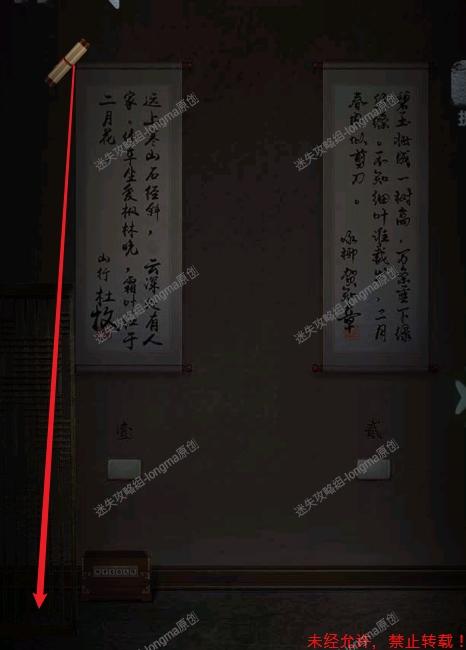 远上寒山石径斜，云深处有人
家。停车坐爱枫林晚，霜叶红于
二月花
山行 杜牧
碧玉妆成一树高，万条垂下绿
丝绦。不知细叶谁裁出，二月
春风似剪刀。
咏柳 贺知章
壹
贰
迷失攻略組-longma原创
迷失攻略組-longma原创
迷失攻略組-longma原创
迷失攻略組-longma原创
迷失攻略組-longma原创
迷失攻略組-longma原创
longma原创
longma原创
未经允许，禁止转载！